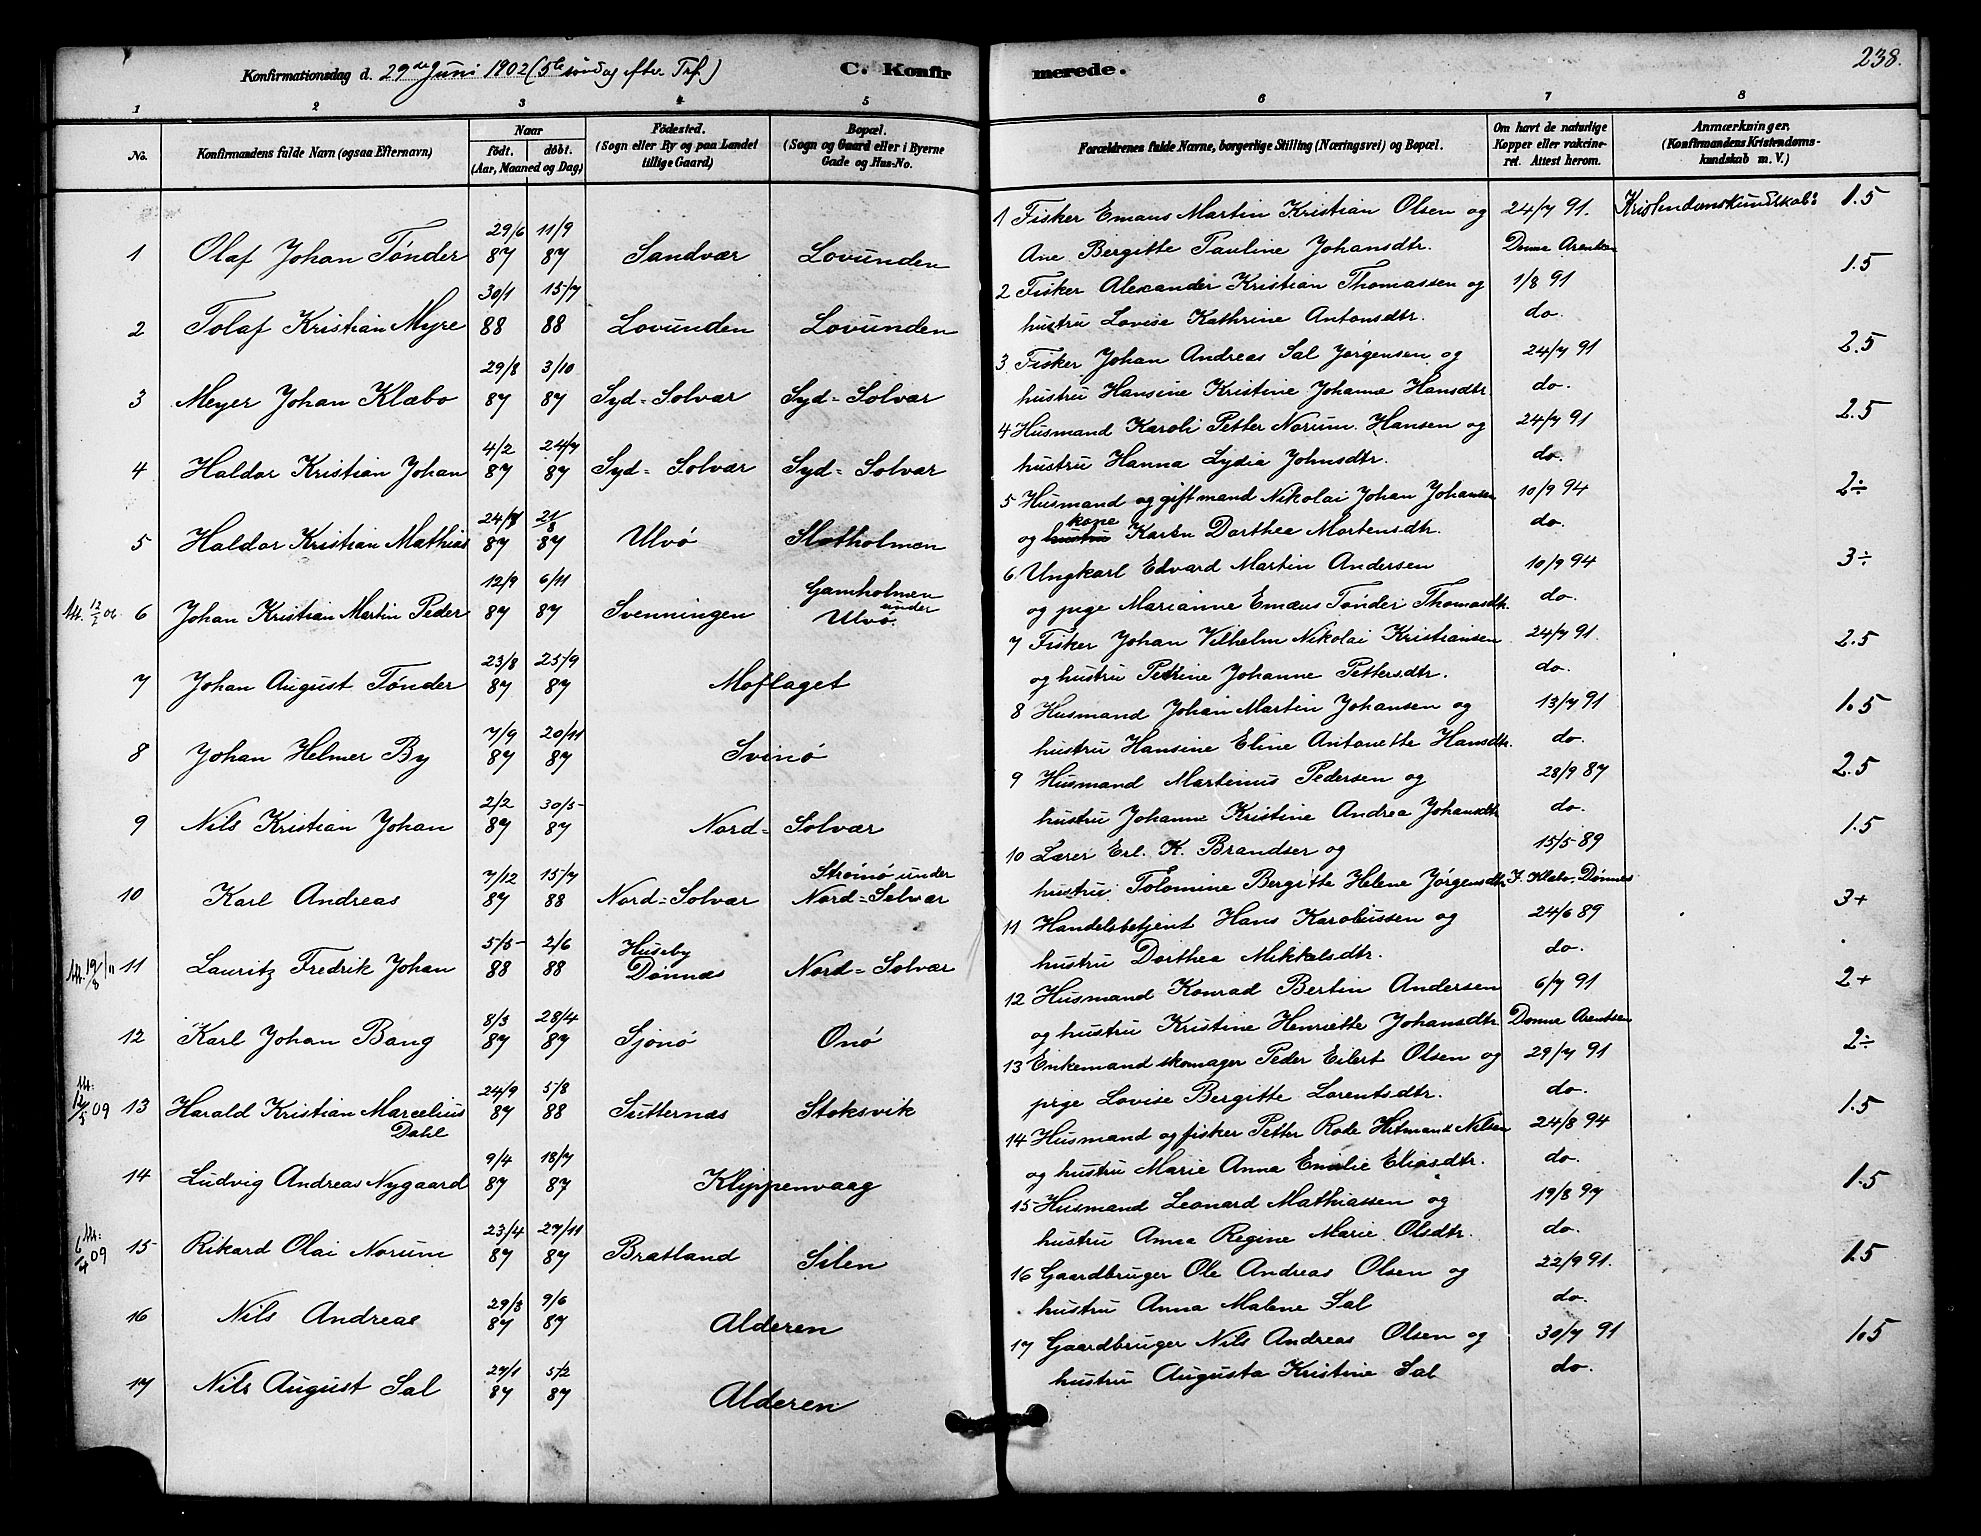 Konfirmationsdag d. 29de Juni 1902 (5te søndag efter Trf.)
C. Konfirmerede.
238.
1 2 3 4 5 6 7 8
No.
Konfirmandens fulde Navn (ogsaa Efternavn)
Naar
födt. döbt.
(Aar, Maaned og Dag)
Födested.
(Sogn eller By og paa Landet
tillige Gaard)
Bopæl.
(Sogn og Gaard eller i Byerne
Gade og Hus-No.
Forældrenes fulde Navne, borgerlige Stilling (Næringsvei) og Bopæl.
Om havt de naturlige
Kopper eller vakcine-
ret. Attest herom.
Anmærkninger.
(Konfirmandens Kristendoms-
kundskab m. V.)
29/6 11/9
1 Olaf Johan Tønder 87 87 Sandvær Lovunden
30/1 15/7
2 Tolaf Kristian Myre 88 88 Lovunden Lovunden
29/8 3/10
3 Meyer Johan Klæbo 87 87 Syd-Solvær Syd-Solvær
4/2 24/7
4 Haldor Kristian Johan 87 87 Syd-Solvær Syd-Solvær
24/7 21/8
5 Haldor Kristian Mathias 87 87 Ulvø Slotholmen
12/9 6/11 Gamholmen
6 Johan Kristian Martin Peder 87 87 Svenningen under Ulvø.
23/8 25/9
7 Johan August Tønder 87 87 Moflaget
7/9 20/11
8 Johan Helmer By 87 87 Svinø
2/2 30/5
9 Nils Kristian Johan 87 87 Nord-Solvær
7/12 15/7 Strømø under
10 Karl Andreas 87 88 Nord-Solvær Nord-Solvær
5/5 2/6 Huseby
19/8 11 11 Lauritz Fredrik Johan 88 88 Dønnæs Nord-Solvær
8/3 28/4
12 Karl Johan Bang 87 87 Sjonø Onø
24/9 5/8
12/5 09 13 Harald Kristian Marcelius 87 88 Sutternæs Stoksvik
Dahl
9/4 18/7
14 Ludvig Andreas Nygaard 87 87 Klippenvaag
23/4 27/11
6/4 09 15 Rikard Olai Norum 87 87 Bratland Silen
29/3 9/6
16 Nils Andreas 87 87 Alderen
27/1 5/2
17 Nils August Sal 87 87 Alderen
1 Fisker Emaus Martin Kristian Olsen og 24/7 91. Kristendomskundskab: 1.5
Ane Bergitte Pauline Johansdtr. Donna Arentsen
2 Fisker Alexander Kristian Thomassen og 1/8 91 1.5
hustru Lovise Kathrine Antonsdtr. do.
3 Fisker Johan Andreas Sal Jørgensen og 24/7 91 2.5
hustru Hansine Kristine Johanna Hansdtr. do.
4 Husmand Karoli Petter Norum Hansen og 24/7 91 2.5
hustru Hanna Lydia Johnsdtr. do.
5 Husmand og gift mand Nikolai Johan Johansen 10/9 94 2÷
og hustru kone Karen Dorthea Martensdtr. do.
6 Ungkarl Edvard Martin Andersen 10/9 94 3÷
og pige Marianne Emæus Tønder Thomasdtr. do.
7 Fisker Johan Vilhelm Nikolai Kristiansen 24/7 91. 2.5
og hustru Petrine Johanne Pettersdtr. do.
8 Husmand Johan Martin Johansen og 13/7 91 1.5
hustru Hansine Eline Antonette Hansdtr. do.
9 Husmand Martinus Pedersen og 28/9 87 2.5
hustru Johanne Kristine Andrea Johansdtr do.
10 Lærer Erl. K. Brandser og 15/5 89 1.5
hustru Tolomine Bergitte Helene Jørgensdtr J. Klæbo, Dønnes
11 Handelsbetjent Hans Karolussen og 24/6 89 3+
hustru Dorthea Mikkelsdtr. do.
12 Husmand Konrad Bertin Andersen 6/7 91 2+
og hustru Kristine Henriette Johansdtr Donna Arentsen
13 Enkemand skomager Peder Eilert Olsen og 29/7 91 2÷
pige Lovise Bergitte Lorentsdtr. do.
14 Husmand og fisker Petter Rode Hitmand Nilsen 24/8 94 1.5
og hustru Marie Anna Emilie Eliasdtr. do.
15 Husmand Leonard Mathiassen og 19/8 97 1.5
hustru Anna Regine Marie Olsdtr. do.
16 Gaardbruger Ole Andreas Olsen og 22/9 91. 1.5
hustru Anna Malene Sal do.
17 Gaardbruger Nils Andreas Olsen og 30/7 91 1.5
hustru Augusta Kristine Sal do.